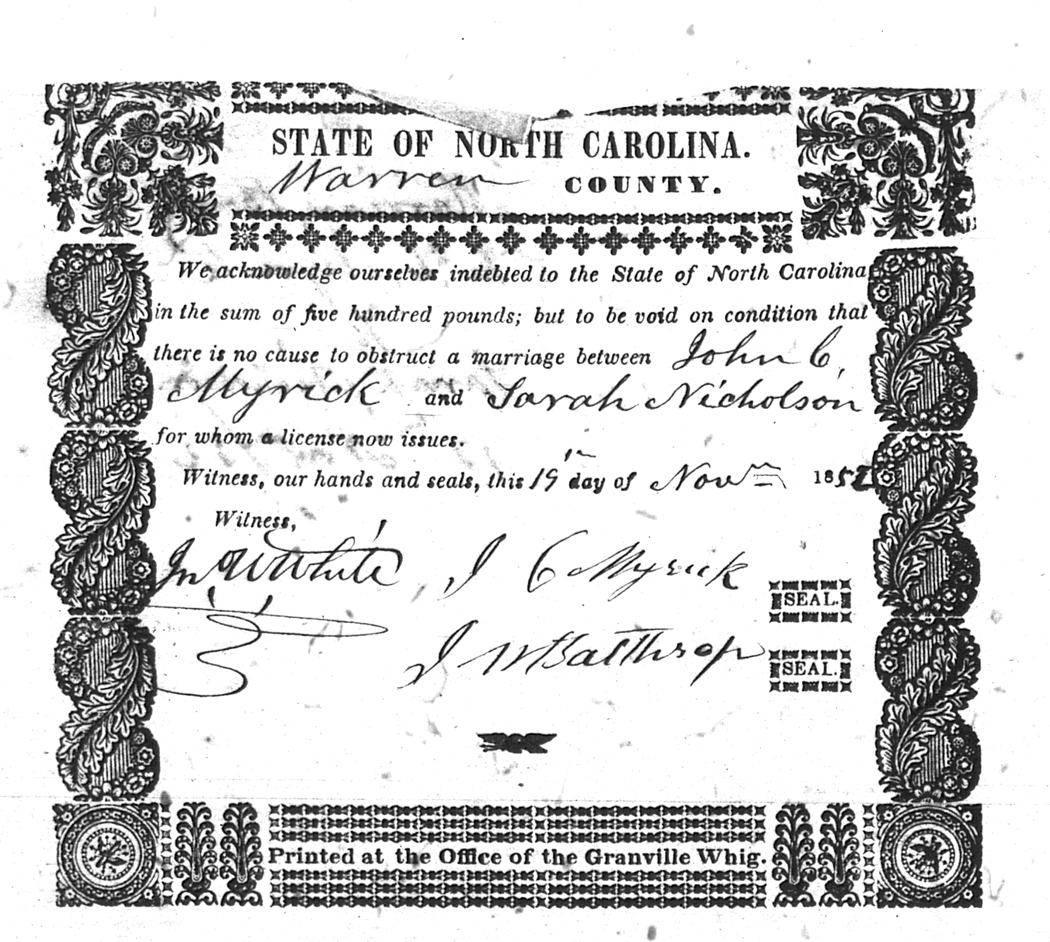 STATE OF NORTH CAROLINA.
Warren COUNTY.
We acknowledge ourselves indebted to the State of North Carolina
in the sum of five hundred pounds; but to be void on condition that
there is no cause to obstruct a marriage between John C.
Myrick and Sarah Nicholson
for whom a license now issues.
Witness, our hands and seals, this 19th day of Novm 185
Witness,
Jno W White J C Myrick SEAL.
J W Balthrop SEAL.
Printed at the Office of the Granville Whig.